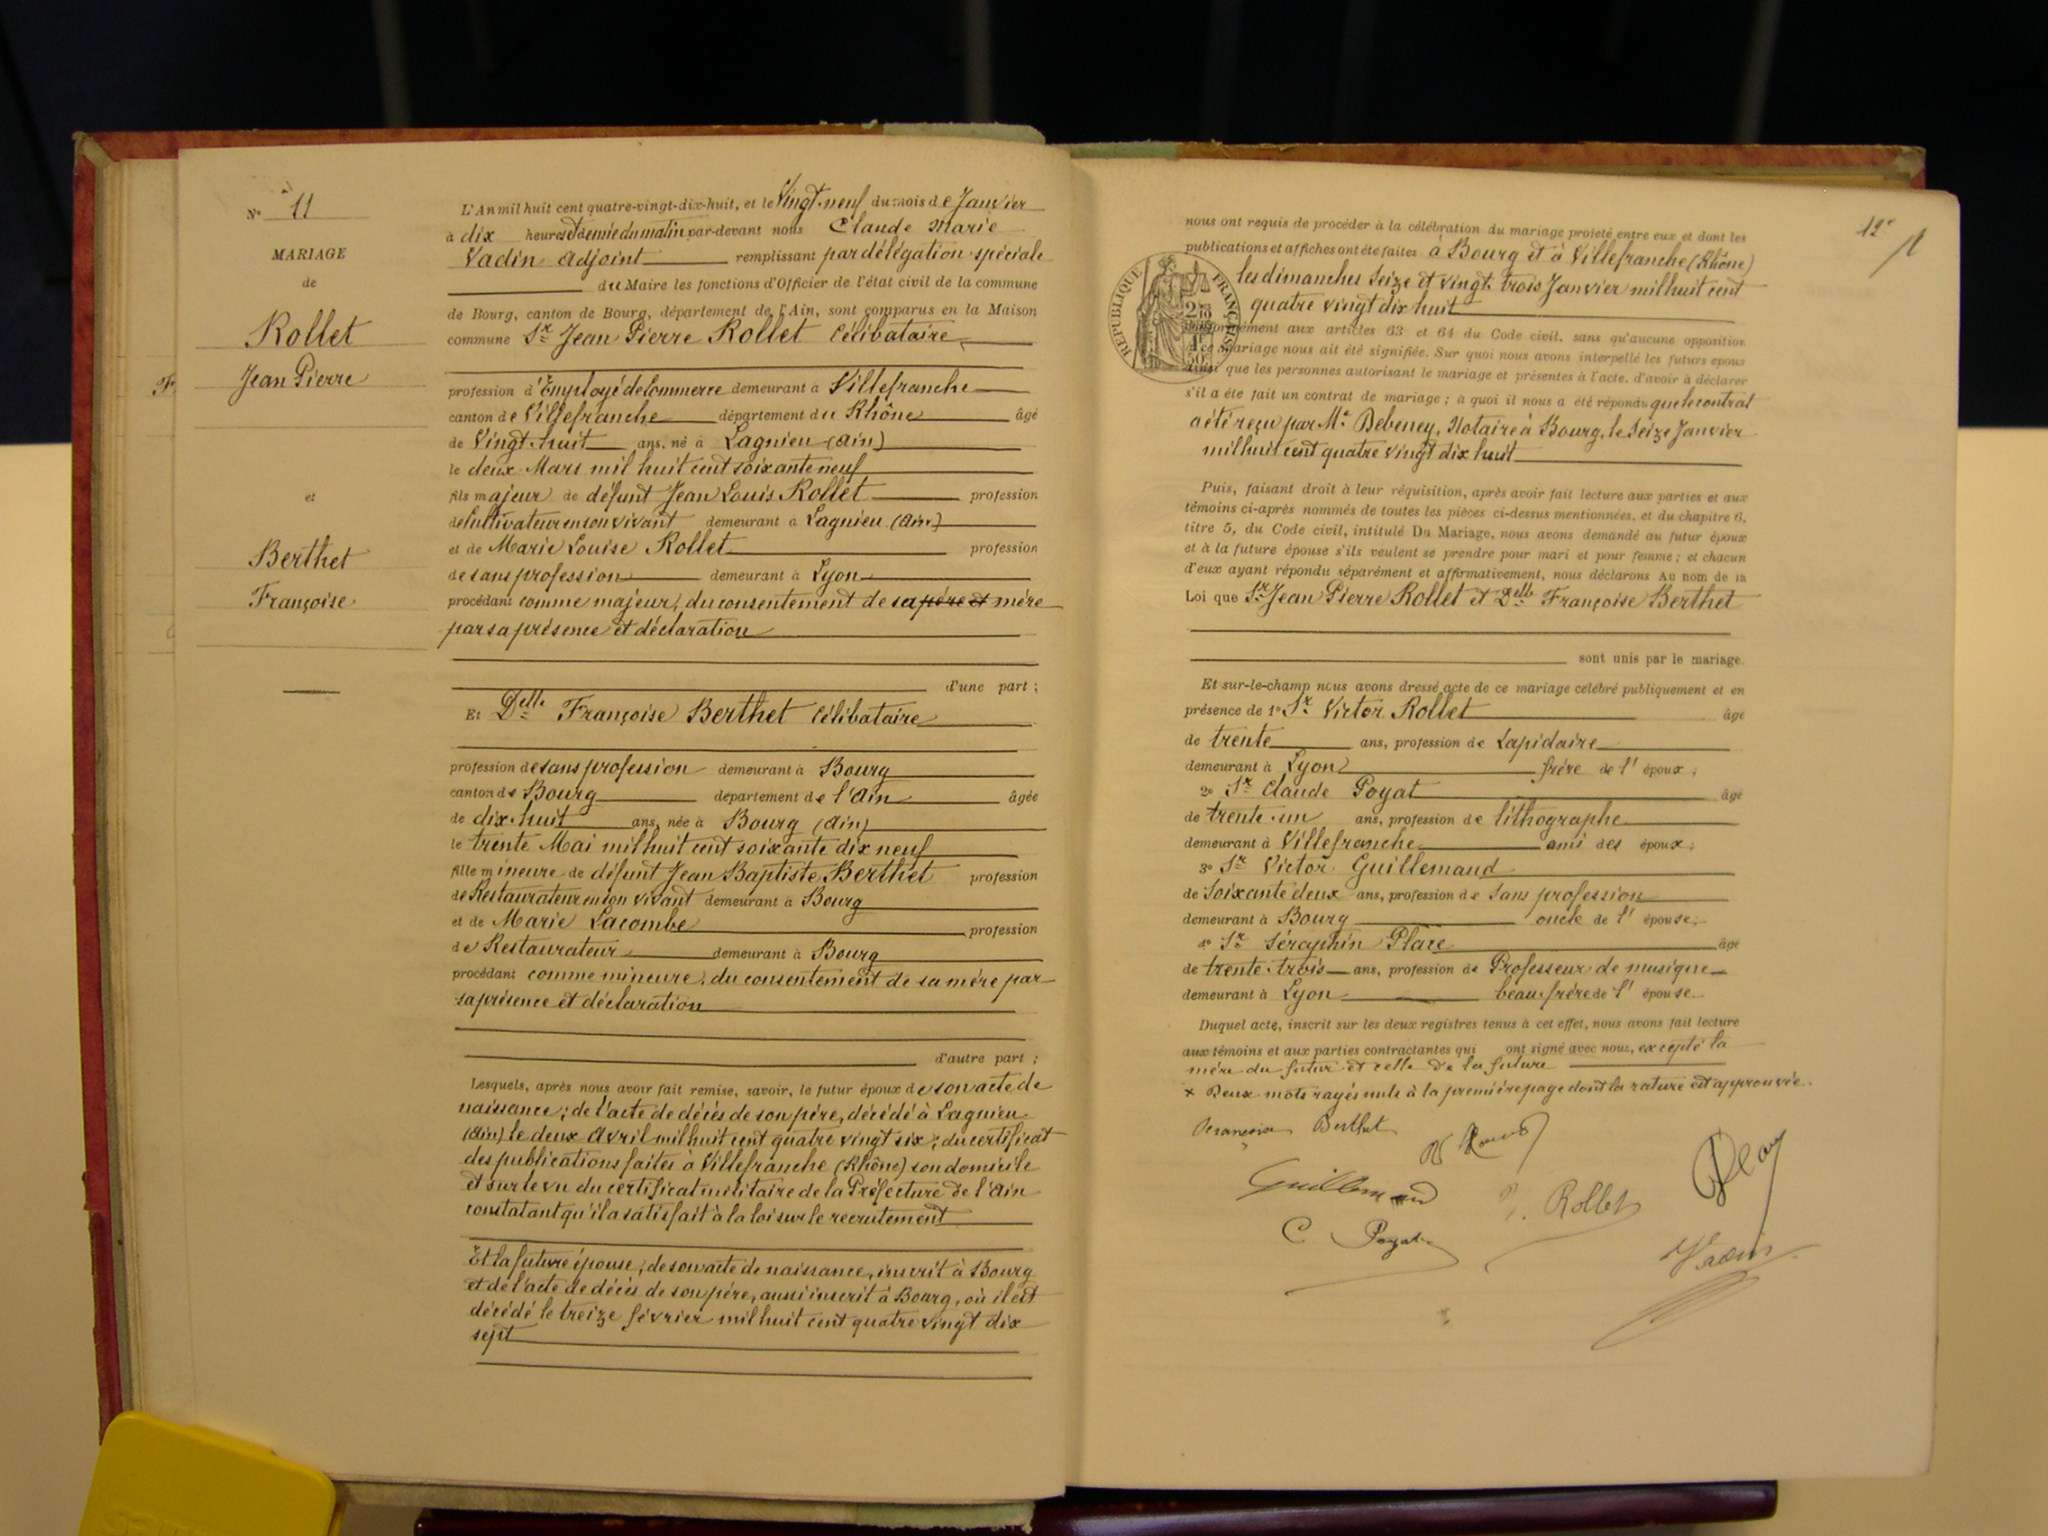 N° 11
MARIAGE
de
Rollet
Jean Pierre
et
Berthet
Françoise
L'An mil huit cent quatre-vingt-dix-huit, et le Vingt-neuf du mois de Janvier
à dix heures et demie du matin par-devant nous Claude Marie
Vadin Adjoint remplissant par délégation spéciale
du Maire les fonctions d'Officier de l'état civil de la commune
de Bourg, canton de Bourg, département de l'Ain, sont comparus en la Maison
commune Sr Jean Pierre Rollet Célibataire,
profession d'Employé de Commerce demeurant à Villefranche
canton de Villefranche département du Rhône âgé
de Vingt-huit ans, né à Lagnieu (Ain)
le deux Mars mil huit cent soixante neuf
fils majeur de défunt Jean Louis Rollet profession
de Cultivateur en son vivant demeurant à Lagnieu (Ain)
et de Marie Louise Rollet profession
de sans profession demeurant à Lyon
procédant comme majeur, du consentement de sa père et mère
par sa présence et déclaration
d'une part ;
Et Delle Françoise Berthet Célibataire
profession de sans profession demeurant à Bourg
canton de Bourg département de l'Ain âgée
de dix-huit ans, née à Bourg (Ain)
le trente Mai mil huit cent soixante dix neuf
fille mineure de défunt Jean Baptiste Berthet profession
de Restaurateur en son vivant demeurant à Bourg
et de Marie Lacombe profession
de Restaurateur demeurant à Bourg
procédant comme mineure, du consentement de sa mère par
sa présence et déclaration
d'autre part ;
Lesquels, après nous avoir fait remise, savoir, le futur époux de son acte de
naissance ; de l'acte de décès de son père, décédé à Lagnieu
(Ain) le deux Avril mil huit cent quatre vingt six ; du certificat
des publications faites à Villefranche (Rhône) son domicile
et sur le vu du certificat militaire de la Préfecture de l'Ain
constatant qu'il a satisfait à la loi sur le recrutement
Et la future épouse, de son acte de naissance, inscrit à Bourg
et de l'acte de décès de son père, aussi inscrit à Bourg, où il est
décédé le treize février mil huit cent quatre vingt dix
sept
12e
nous ont requis de procéder à la célébration du mariage projeté entre eux et dont les
publications et affiches ont été faites à Bourg et à Villefranche (Rhône)
les dimanches Seize et vingt trois Janvier mil huit cent
quatre vingt dix huit
RÉPUBLIQUE FRANÇAISE
conformément aux articles 63 et 64 du Code civil, sans qu'aucune opposition
à ce mariage nous ait été signifiée. Sur quoi nous avons interpellé les futurs époux
ainsi que les personnes autorisant le mariage et présentes à l'acte, d'avoir à déclarer
s'il a été fait un contrat de mariage ; à quoi il nous a été répondu que le contrat
a été reçu par Me Debeney, Notaire à Bourg, le Seize Janvier
mil huit cent quatre vingt dix huit
Puis, faisant droit à leur réquisition, après avoir fait lecture aux parties et aux
témoins ci-après nommés de toutes les pièces ci-dessus mentionnées, et du chapitre 6,
titre 5, du Code civil, intitulé Du Mariage, nous avons demandé au futur époux
et à la future épouse s'ils veulent se prendre pour mari et pour femme ; et chacun
d'eux ayant répondu séparément et affirmativement, nous déclarons Au nom de la
Loi que Sr Jean Pierre Rollet et Delle Françoise Berthet
sont unis par le mariage.
Et sur-le-champ nous avons dressé acte de ce mariage célébré publiquement et en
présence de 1° Sr Victor Rollet âgé
de trente ans, profession de Lapidaire
demeurant à Lyon frère de l'époux ;
2° Sr Claude Poyat âgé
de trente-un ans, profession de lithographe
demeurant à Villefranche ami des époux ;
3° Sr Victor Guillemand
de Soixante deux ans, profession de Sans profession
demeurant à Bourg oncle de l'épouse ;
4° Sr Séraphin Place âgé
de trente-trois ans, profession de Professeur de musique
demeurant à Lyon beau-frère de l'épouse
Duquel acte, inscrit sur les deux registres tenus à cet effet, nous avons fait lecture
aux témoins et aux parties contractantes qui ont signé avec nous, excepté la
mère du futur et celle de la future
x Deux mots rayés nuls à la première page dont la rature est approuvée.
Françoise Berthet
Guillemand
Rollet
C Poyat
Vadin